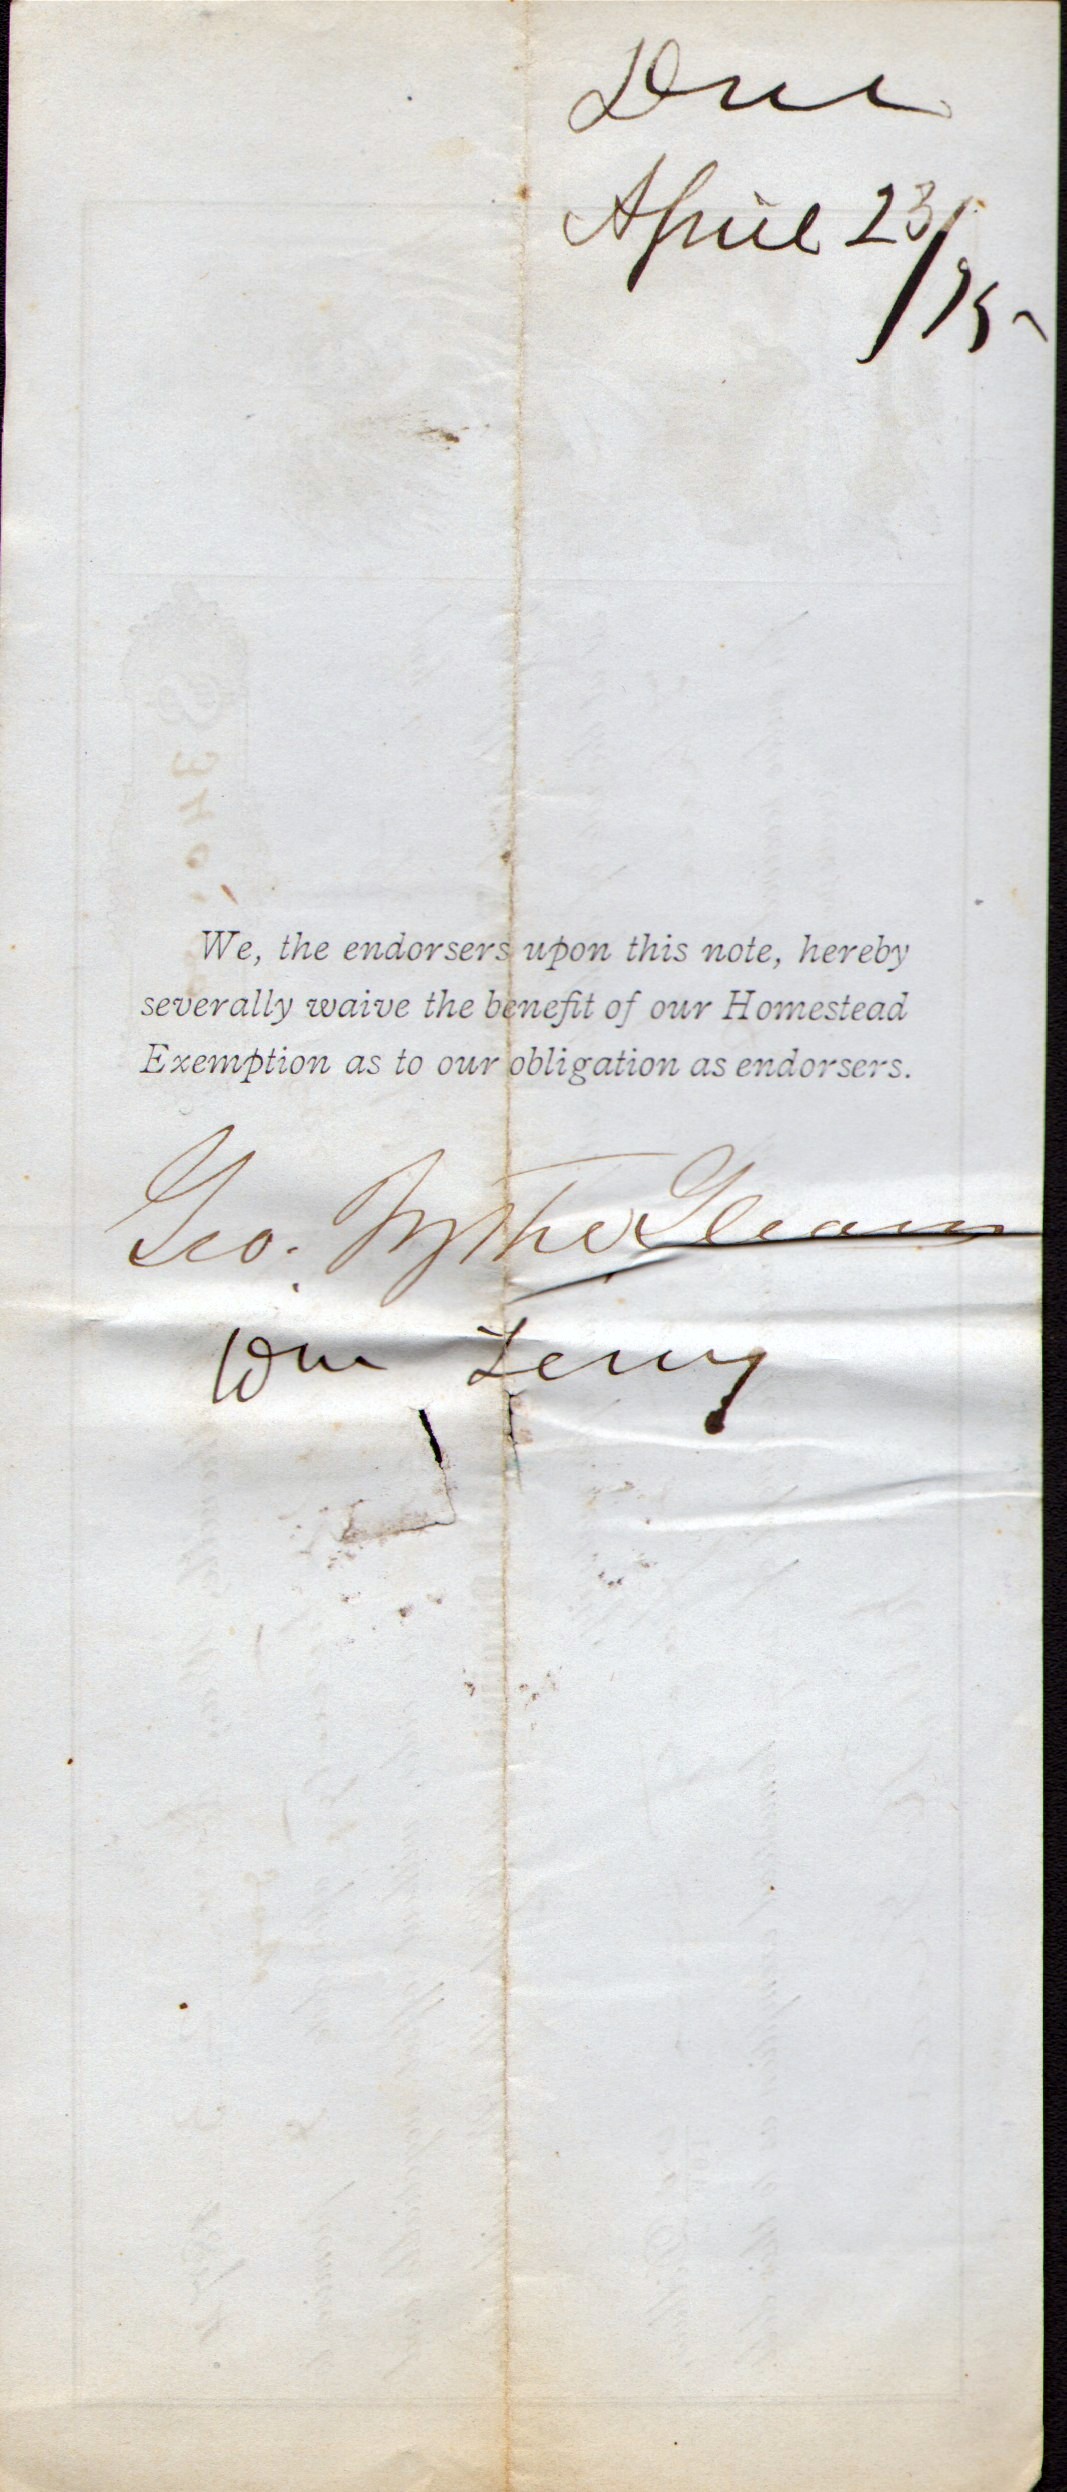 Due
April 23/75
We, the endorsers upon this note, hereby
severally waive the benefit of our Homestead
Exemption as to our obligation as endorsers.
Geo.
Wm Terry